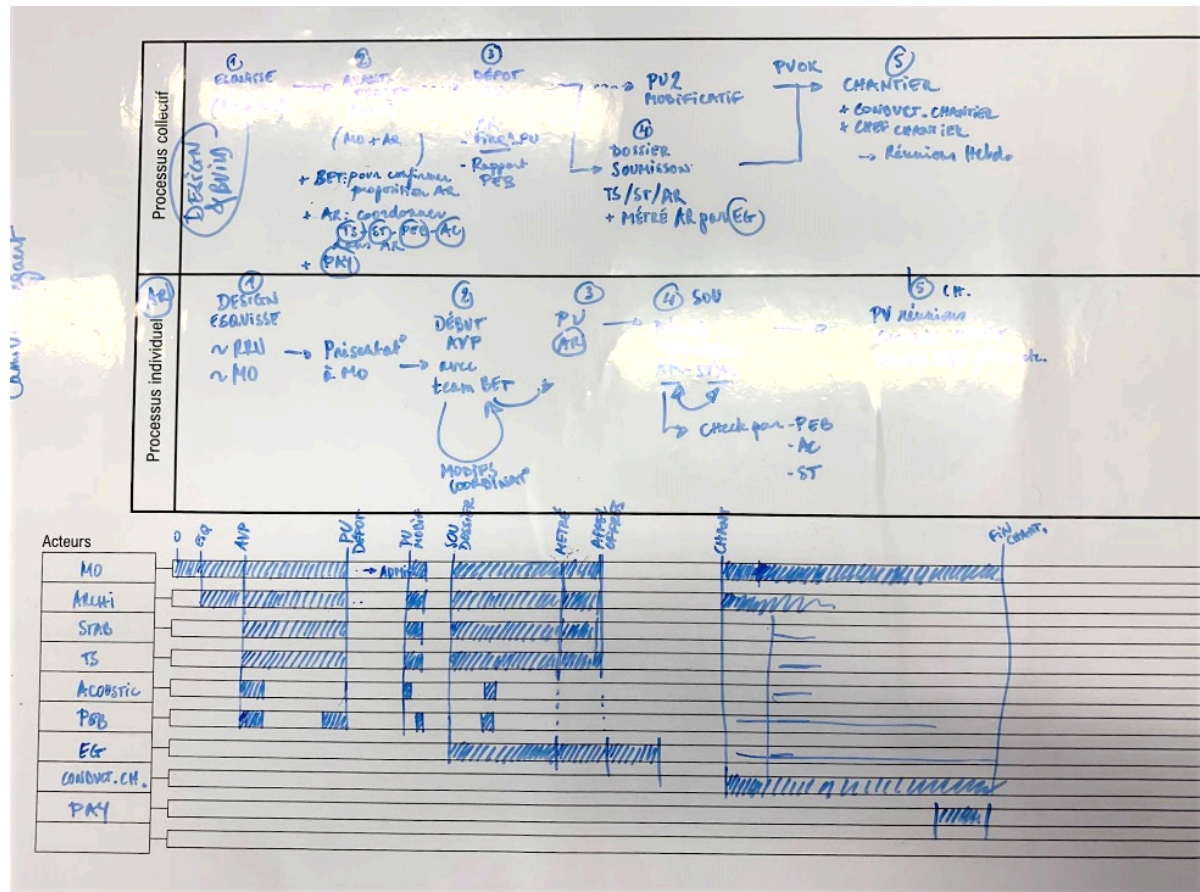 Processus collectif
DESIGN
& BUILD
①
ESQUISSE
②
AVANT-
(MO + AR)
+ BET: pour confirmer
proposition AR
+ AR: coordonner
TS - ST - PEB - AC
AR
+ PAY
③
DÉPOT
PU
- Rapport
PEB
PU2
MODIFICATIF
④
DOSSIER
SOUMISSON
TS/ST/AR
+ MÉTRÉ AR par EG
PUOK
⑤
CHANTIER
+ CONDUCT. CHANTIER
+ CHEF CHANTIER
→ Réunions Hebdo
Processus individuel
AR
①
DESIGN
ESQUISSE
~ MO
→ Présentat°
à MO
②
DÉBUT
AVP
avec
team BET
MODIFS
COORDINAT°
③
PU
AR
④ SOU
→ Check par - PEB
- AC
- ST
⑤ CH.
PV réunions
etc.
Acteurs
O
ESQ
AVP
PU
DÉPOT
PU
MODIF
SOU
DOSSIER
METRÉ
APPEL
OFFRES
CHANT
FIN
CHANT.
MO
→ ADMIN
ARCHI
STAB
TS
ACOUSTIC
PEB
EG
CONDUCT. CH.
PAY